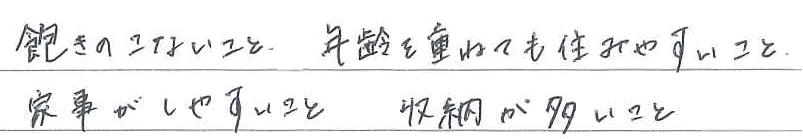 飽きのこないこと. 年齢を重ねても住みやすいこと.
家事がしやすいこと 収納が多いこと